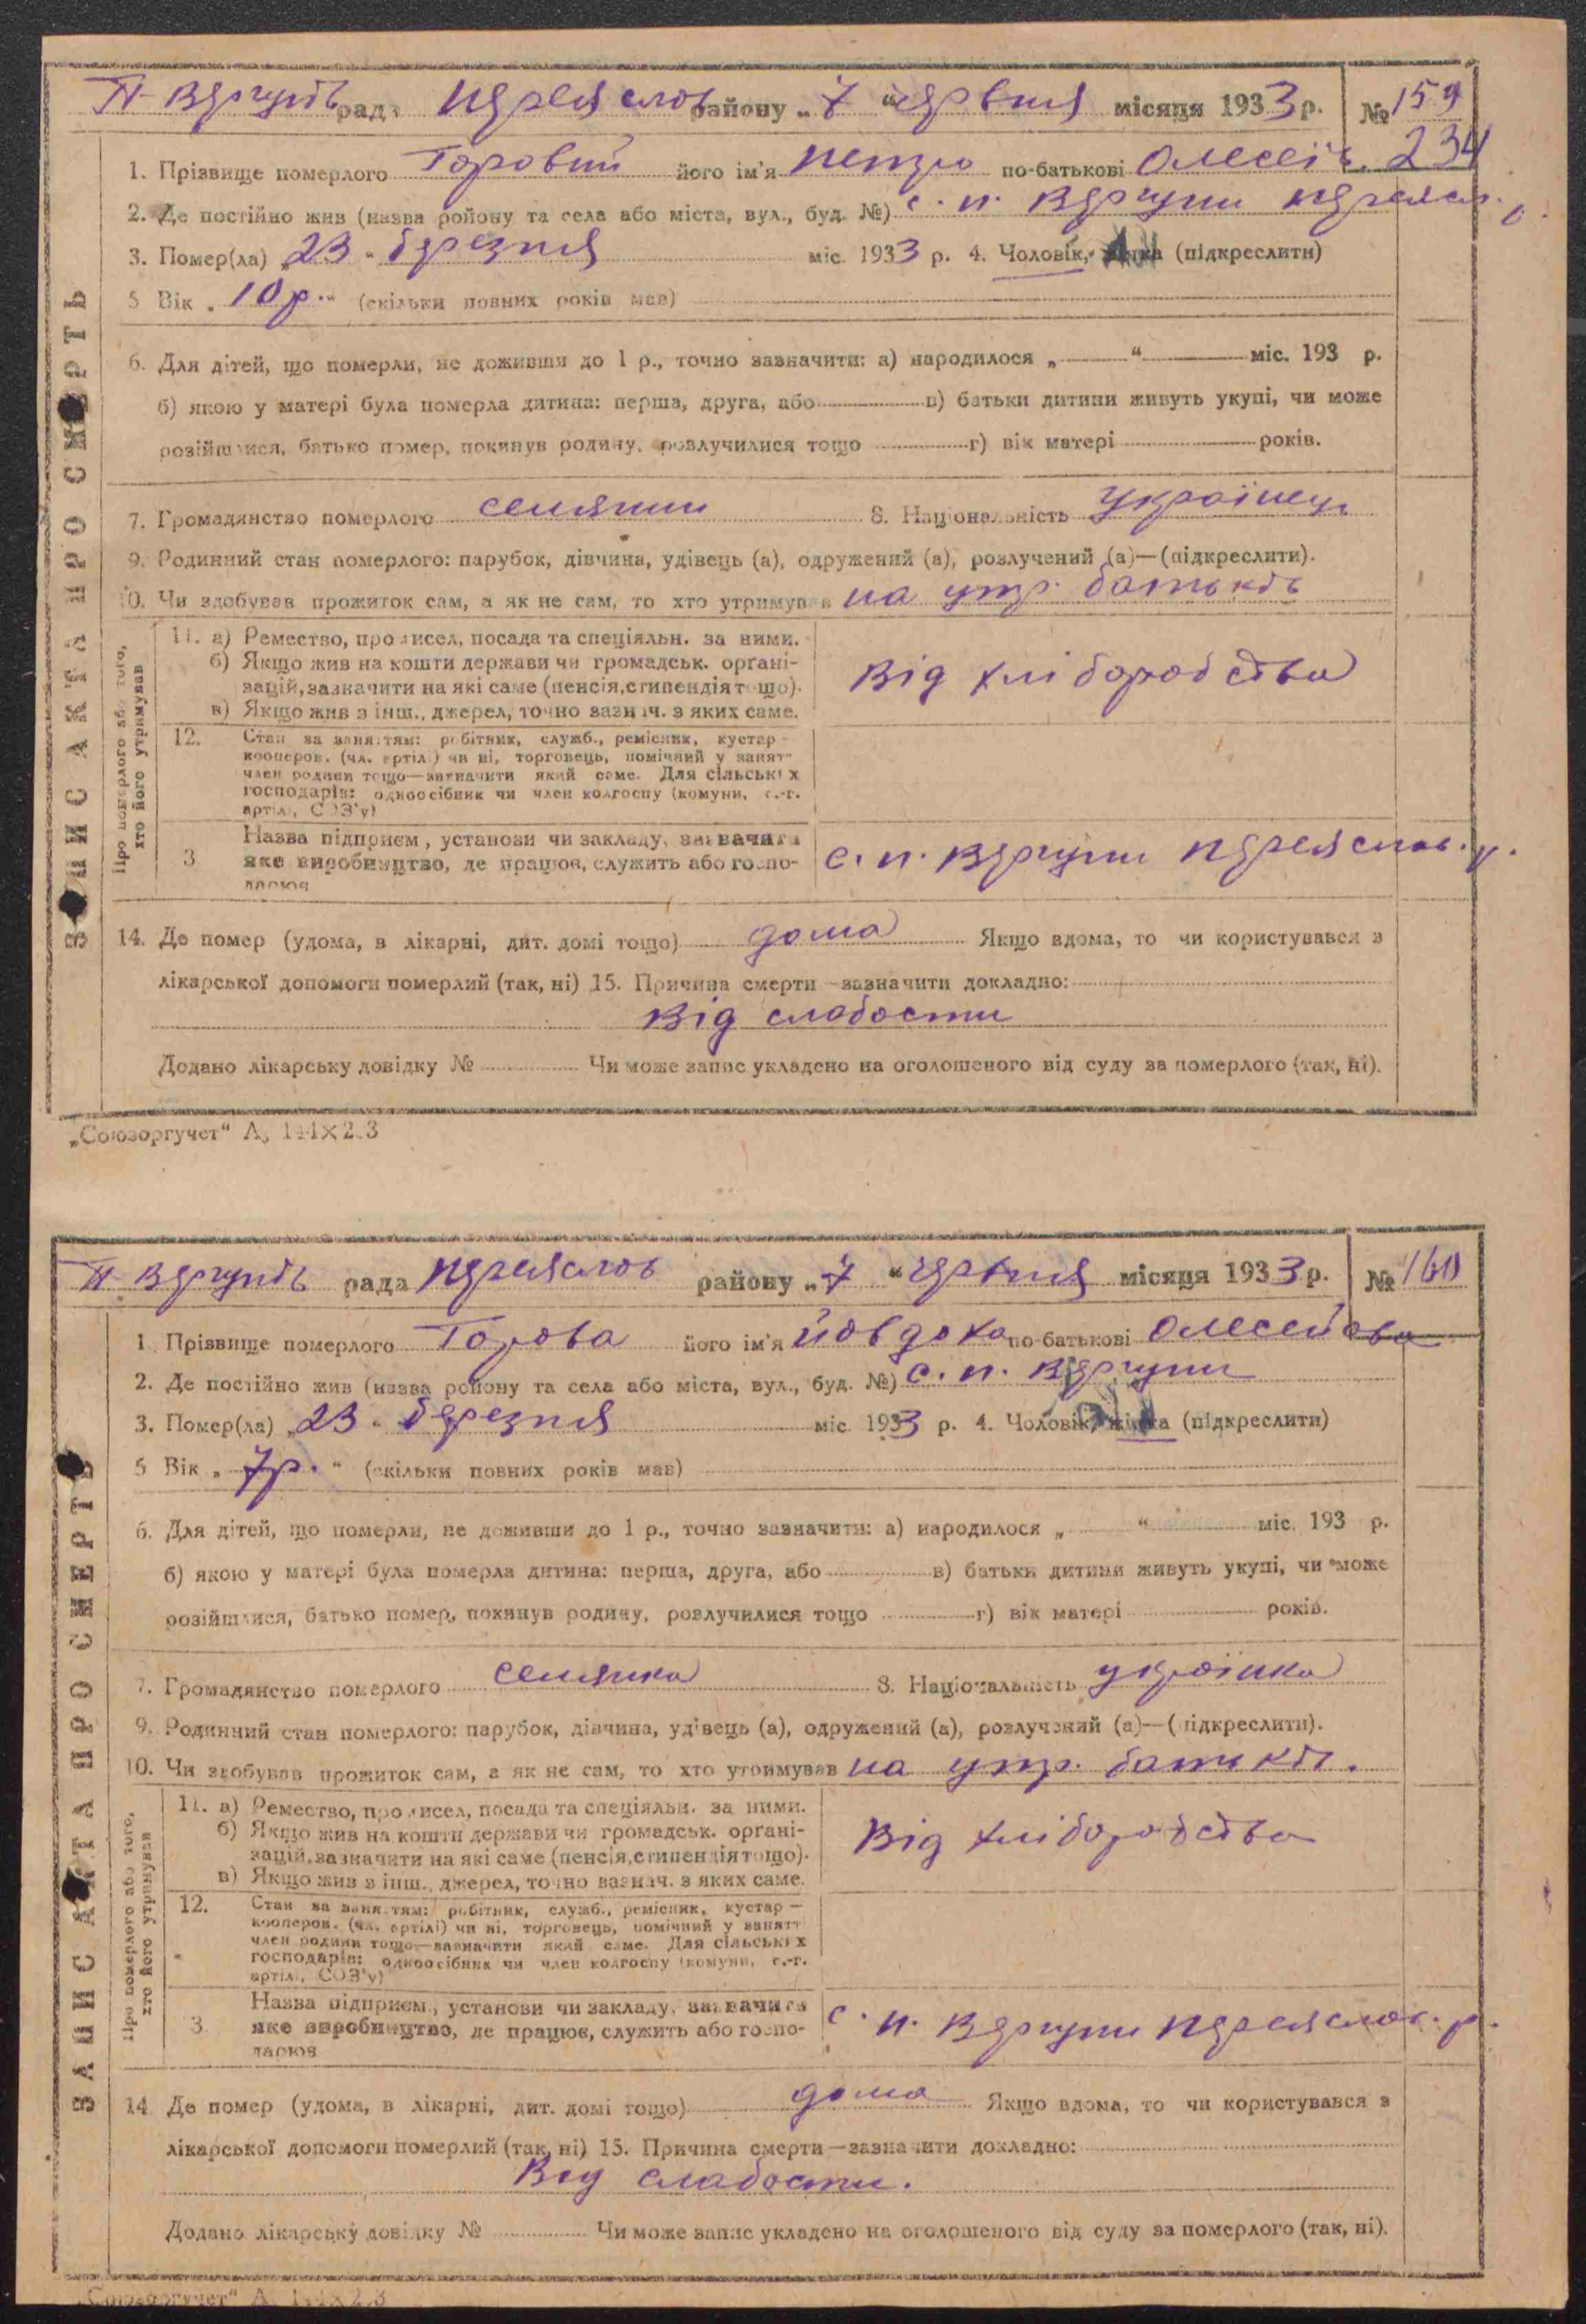 П-Вергунів рада Переяслов району „7“ червня місяця 1933 р. № 159
234
1. Прізвище померлого Горовий його ім'я Петро по-батькові Олексів.
2. Де постійно жив (назва району та села або міста, вул., буд. №) с. п. Вергуни Переясл. р.
3. Помер(ла) „23“ березня міс. 1933 р. 4. Чоловік, жінка (підкреслити)
5 Вік „10 р.“ (скільки повних років мав)
6. Для дітей, що померли, не доживши до 1 р., точно зазначити: а) народилося „ “ міс. 193 р.
б) якою у матері була померла дитина: перша, друга, або в) батьки дитини живуть укупі, чи може
розійшлися, батько помер, покинув родину, розлучилися тощо г) вік матері років.
7. Громадянство померлого селянин 8. Національність українець
9. Родинний стан померлого: парубок, дівчина, удівець (а), одружений (а), розлучений (а)—(підкреслити).
10. Чи здобував прожиток сам, а як не сам, то хто утримував на утр. батьків
11. а) Ремество, промисел, посада та спеціяльн. за ними.
б) Якщо жив на кошти держави чи громадськ. орґані-
зацій, зазначити на які саме (пенсія, стипендія тощо).
в) Якщо жив з інш., джерел, точно зазнач. з яких саме.
Від хліборобства
12. Стан за заняттям: робітник, служб., ремісник, кустар—
кооперов. (чл. артілі) чи ні, торговець, помічний у занятт
член родини тощо—зазначити який саме. Для сільських
господарів: одноосібник чи член колгоспу (комуни, с.-г.
артілі, СОЗ'у)
3 Назва підприєм., установи чи закладу, зазначити
яке виробництво, де працює, служить або госпо-
дарює
с. п. Вергуни Переяслов. р.
14. Де помер (удома, в лікарні, дит. домі тощо) дома Якщо вдома, то чи користувався з
лікарської допомоги померлий (так, ні) 15. Причина смерти—зазначити докладно:
Від слабости
Додано лікарську довідку № Чи може запис укладено на оголошеного від суду за померлого (так, ні).
ЗАПИС АКТА ПРО СМЕРТЬ
Про померлого або того,
хто його утримував
„Союзоргучет“ А5 144×2.3
П-Вергунів рада Переяслов району „7“ червня місяця 1933 р. № 160
1 Прізвище померлого Горова його ім'я Йовдоха по-батькові Олексейовна
2. Де постійно жив (назва району та села або міста, вул., буд. №) с. п. Вергуни
3. Помер(ла) „23“ березня міс. 1933 р. 4. Чоловік, жінка (підкреслити)
5 Вік „7 р.“ (скільки повних років мав)
6. Для дітей, що померли, не доживши до 1 р., точно зазначити: а) народилося „ “ міс. 193 р.
б) якою у матері була померла дитина: перша, друга, або в) батьки дитини живуть укупі, чи може
розійшлися, батько помер, покинув родину, розлучилися тощо г) вік матері років.
7. Громадянство померлого селянка 8. Національність українка
9. Родинний стан померлого: парубок, дівчина, удівець (а), одружений (а), розлучений (а)—(підкреслити).
10. Чи здобував прожиток сам, а як не сам, то хто утримував на утр. батьків.
11. а) Ремество, промисел, посада та спеціяльн. за ними.
б) Якщо жив на кошти держави чи громадськ. орґані-
зацій, зазначити на які саме (пенсія, стипендія тощо).
в) Якщо жив з інш., джерел, точно зазнач. з яких саме.
Від хліборобства
12. Стан за заняттям: робітник, служб., ремісник, кустар—
кооперов. (чл. артілі) чи ні, торговець, помічний у занятт
член родини тощо—зазначити який саме. Для сільських
господарів: одноосібник чи член колгоспу (комуни, с.-г.
артілі, СОЗ'у)
3 Назва підприєм., установи чи закладу, зазначити
яке виробництво, де працює, служить або госпо-
дарює
с. п. Вергуни Переяслов. р.
14 Де помер (удома, в лікарні, дит. домі тощо) дома Якщо вдома, то чи користувався з
лікарської допомоги померлий (так, ні) 15. Причина смерти—зазначити докладно:
Від слабости.
Додано лікарську довідку № Чи може запис укладено на оголошеного від суду за померлого (так, ні).
ЗАПИС АКТА ПРО СМЕРТЬ
Про померлого або того,
хто його утримував
„Союзоргучет“ А5 144×2.3